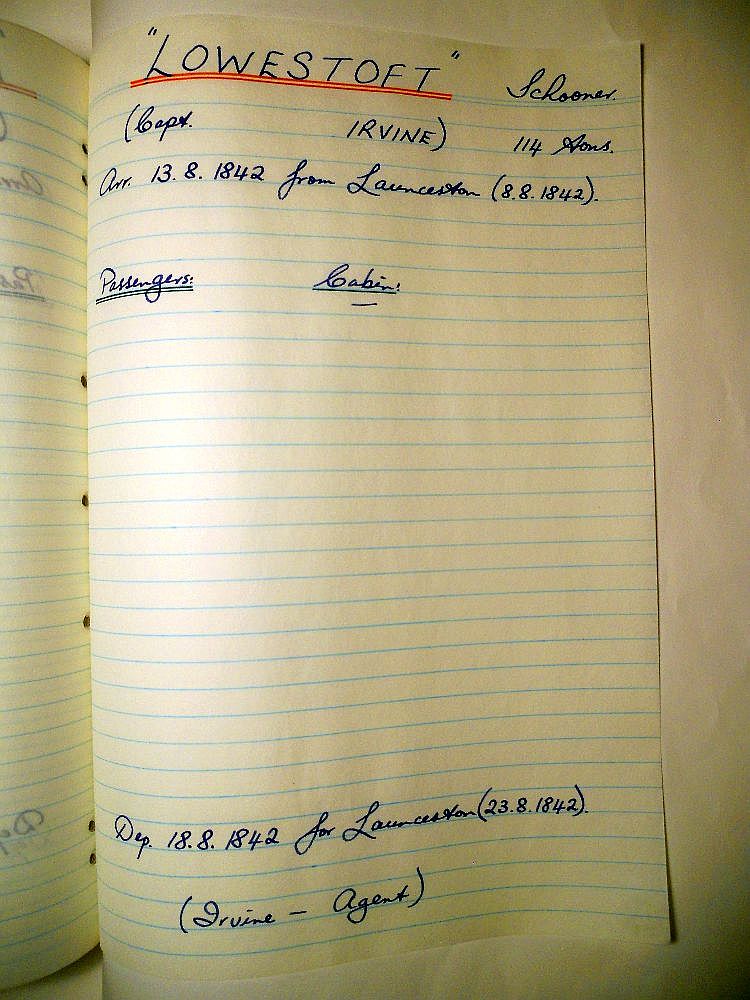 "LOWESTOFT" Schooner.
(Capt. IRVINE) 114 tons.
Arr. 13.8.1842 from Launceston (8.8.1842).
Passengers: Cabin:
—
Dep. 18.8.1842 for Launceston (23.8.1842).
(Irvine – Agent)